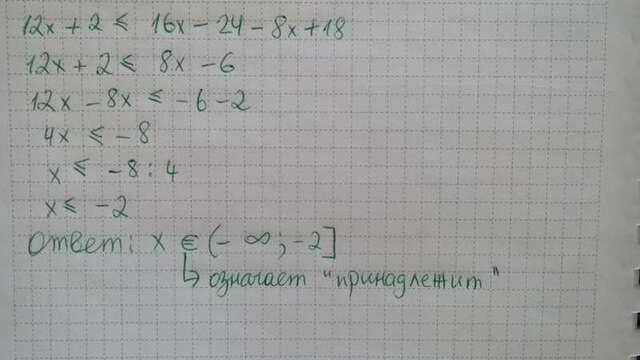 12x + 2 ≤ 16x - 24 - 8x + 18
12x + 2 ≤ 8x - 6
12x - 8x ≤ -6 - 2
4x ≤ -8
x ≤ -8 : 4
x ≤ -2
Ответ: x ∈ (-∞; -2]
↳ означает "принадлежит"